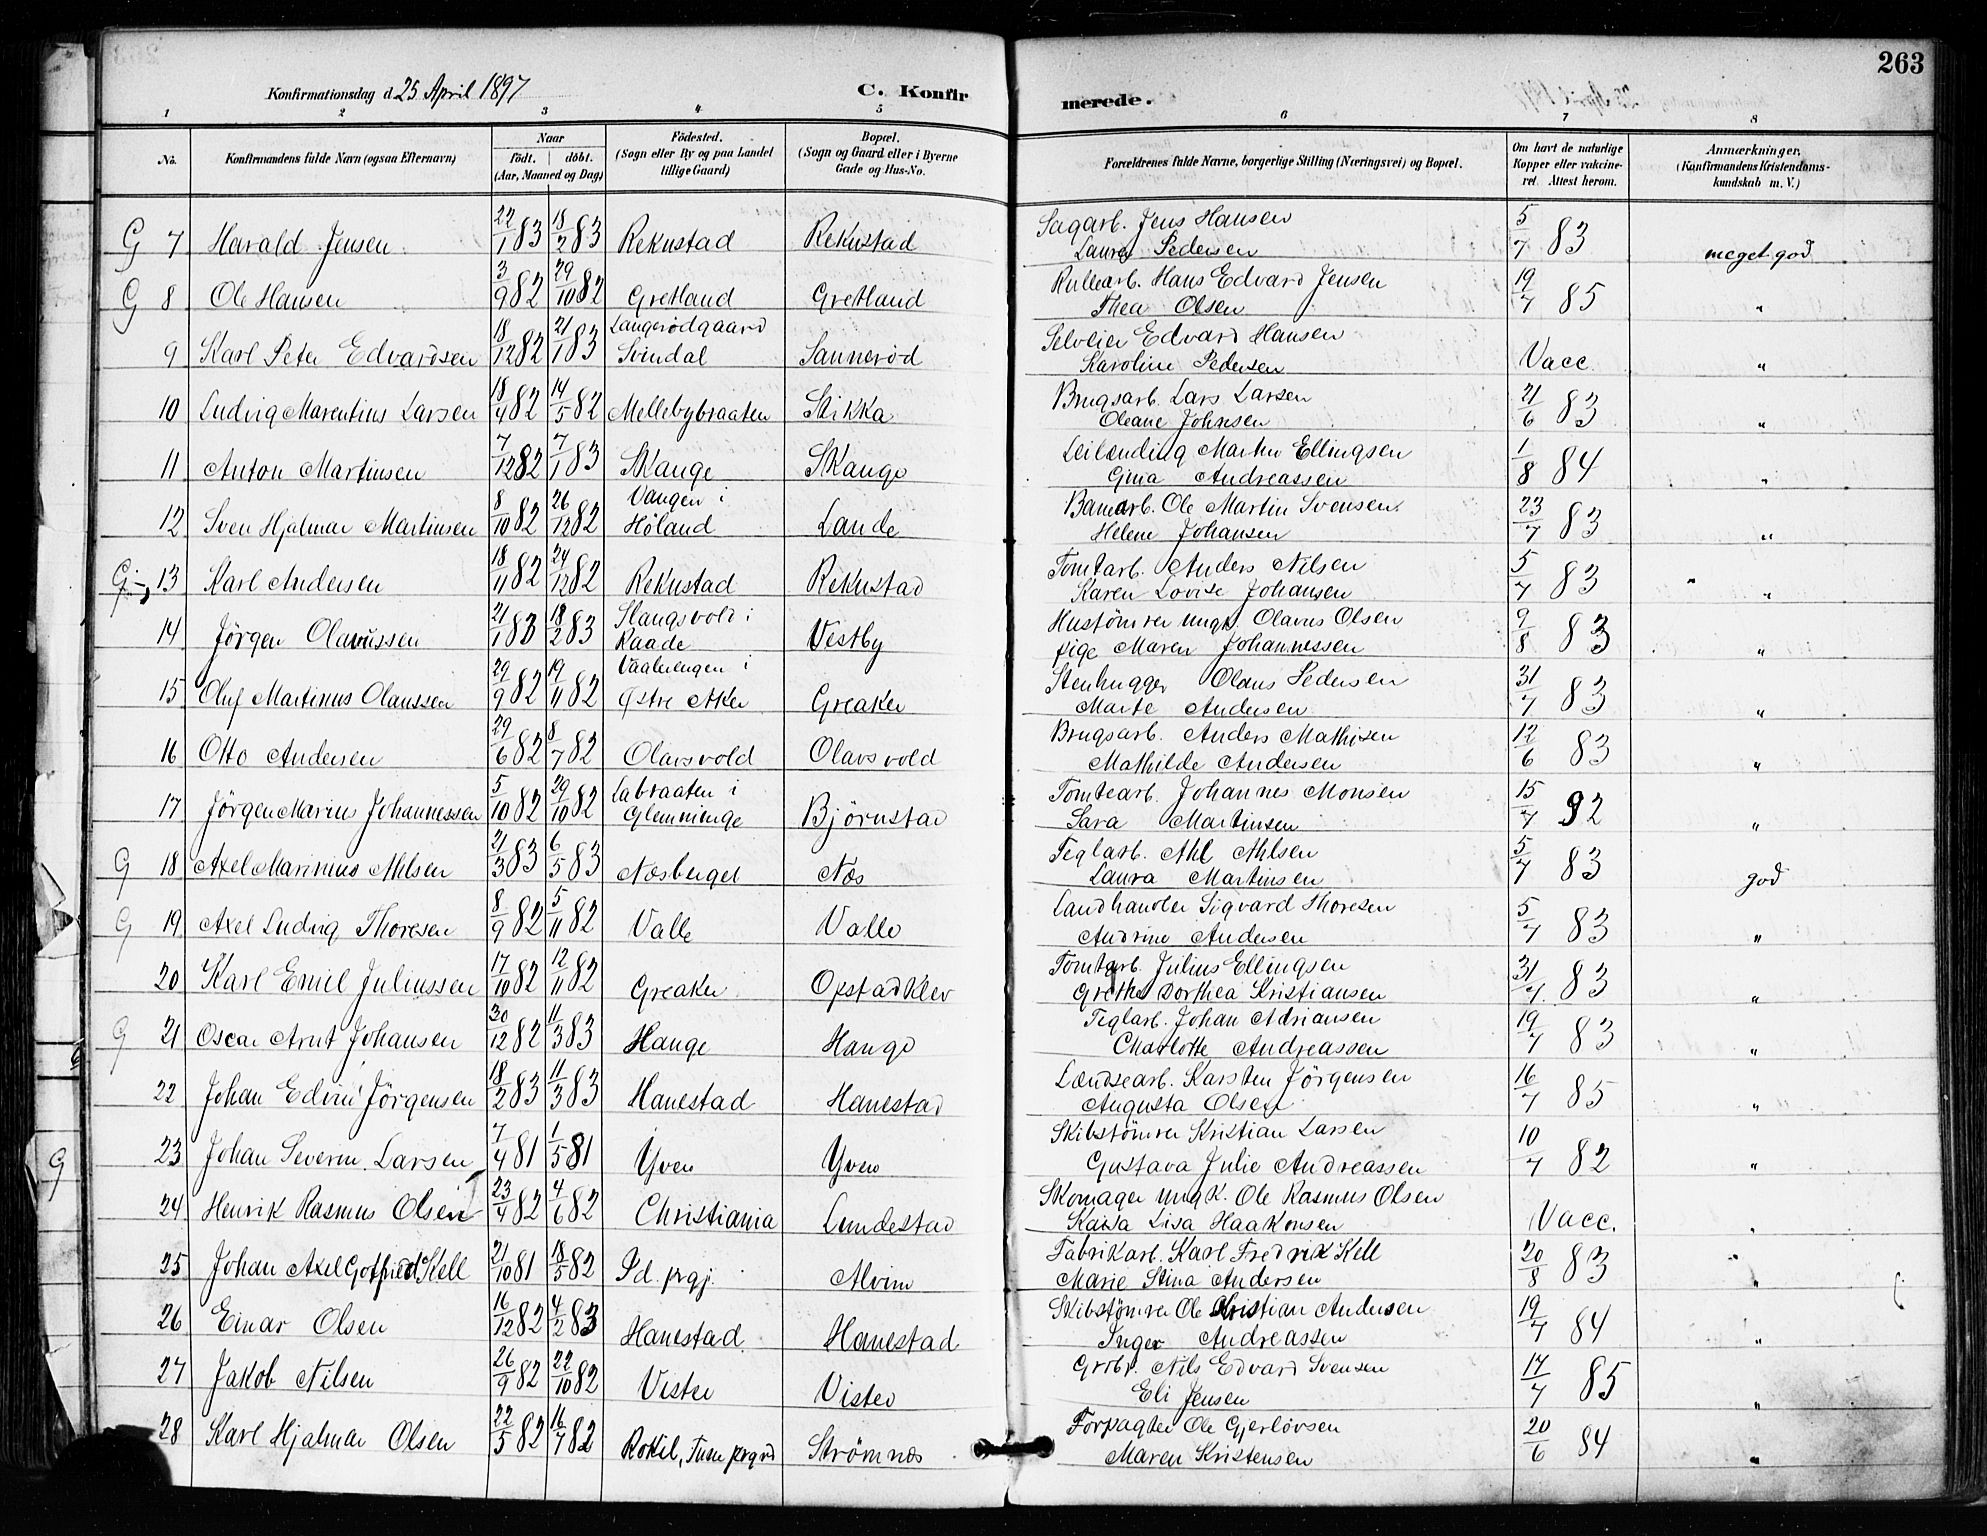 263
Konfirmationsdag d. 25 April 1897
C. Konfirmerede.
1 2 3 4 5 6 7 8
No. | Konfirmandens fulde Navn (ogsaa Efternavn) | Naar födt. | döbt. (Aar, Maaned og Dag) | Födested. (Sogn eller By og paa Landet tillige Gaard) | Bopæl. (Sogn og Gaard eller i Byerne Gade og Hus-No. | Forældrenes fulde Navne, borgerlige Stilling (Næringsvei) og Bopæl. | Om havt de naturlige Kopper eller vakcineret. Attest herom. | Anmærkninger, (Konfirmandens Kristendomskundskab m. V.)
G 7 Harald Jensen 22/1 83 18/2 83 Rekustad Rekustad Sagarb. Jens Hansen Laura Pedersen 5/7 83 meget god
G 8 Ole Hansen 3/9 82 29/10 82 Gretland Gretland Rullearb. Hans Edvard Jensen Thea Olsen 19/7 85 "
9 Karl Peter Edvardsen 18/12 82 21/1 83 Langerödgaard Svindal Sanneröd Selveier Edvard Hansen Karoline Pedersen Vacc. "
10 Ludvig Marentius Larsen 18/4 82 14/5 82 Mellebybraaten Stikka Brugsarb. Lars Larsen Oleane Johnsen 21/6 83 "
11 Anton Martinsen 7/12 82 7/1 83 Skange Skange Leilending Martin Ellingsen Gina Andreassen 1/8 84 "
12 Sven Hjalmar Martinsen 8/10 82 26/12 82 Vangen i Høland Lande Banearb. Ole Martin Svensen Helene Johansen 23/7 83 "
G 13 Karl Andersen 18/11 82 24/12 82 Rekustad Rekustad Tomtarb. Anders Nilsen Karen Lovise Johansen 5/7 83 "
14 Jörgen Olaussen 21/1 83 18/2 83 Slangsvold i Raade Vestby Hustömrer ungk. Olavus Olsen pige Maren Johannessen 9/8 83 "
15 Oluf Martinus Olaussen 29/9 82 19/11 82 Vaalerengen i Østre Aker Greaker Stenhugger Olaus Pedersen Marte Andersen 31/7 83 "
16 Otto Andersen 29/6 82 8/7 82 Olavsvold Olavsvold Brugsarb. Anders Mathisen Mathilde Andersen 12/6 83 "
17 Jörgen Marius Johannessen 5/10 82 29/10 82 Labraaten i Glemminge Björnstad Tomtearb. Johannes Monsen Sara Martinsen 15/7 92 "
G 18 Axel Marinius Nilsen 21/3 83 6/5 83 Næsberget Næs Teglarb. Nils Nilsen Laura Martinsen 5/7 83 god
G 19 Axel Ludvig Thoresen 8/9 82 5/11 82 Valle Valle Landhandler Sigvard Thoresen Andrine Andersen 5/7 83 "
20 Karl Emil Juliussen 17/10 82 12/11 82 Greaker Opstad Klev Tomtarb. Julius Ellingsen Grethe Dorthea Kristiansen 31/7 83 "
G 21 Oscar Arnt Johansen 30/12 82 11/3 83 Hauge Hauge Teglarb. Johan Adriansen Charlotte Andreassen 19/7 83 "
22 Johan Edvin Jörgensen 18/2 83 11/3 83 Hanestad Hanestad Lændsearb. Karsten Jörgensen Augusta Olsen 16/7 85 "
G 23 Johan Severin Larsen 7/4 81 1/5 81 Yven Yven Skibstömrer Kristian Larsen Gustava Julie Andreassen 10/7 82 "
24 Henrik Rasmus Olsen 23/4 82 4/6 82 Christiania Lundestad Skomager ungk. Ole Rasmus Olsen Kaisa Lisa Haakonsen Vacc. "
25 Johan Axel Gotfried Kell 21/10 81 18/5 82 Sd. prgj. Alvim Fabrikarb. Karl Fredrik Kell Marie Stina Andersen 20/8 83 "
26 Einar Olsen 16/12 82 4/2 83 Hanestad Hanestad Skibstömrer Ole Kristian Andersen Inger Andreassen 19/7 84 "
27 Jakob Nilsen 26/9 82 22/10 82 Vister Vister Grdbr. Nils Edvard Svensen Eli Jensen 17/7 85 "
28 Karl Hjalmar Olsen 22/5 82 16/7 82 Rokil, Tune prgrd Strömnæs Forpagter Ole Gjerlövsen Maren Kristensen 20/6 84 "